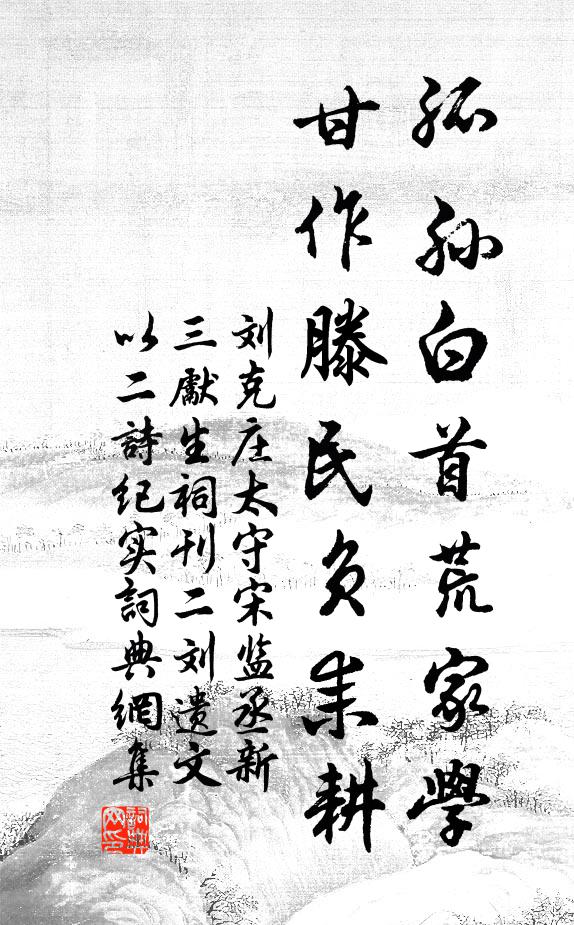 孤孙白首荒家學
甘作滕民负耒耕
刘克庄太守宋监丞新
三獻生祠刊二刘遗文
以二詩纪实詞典網集